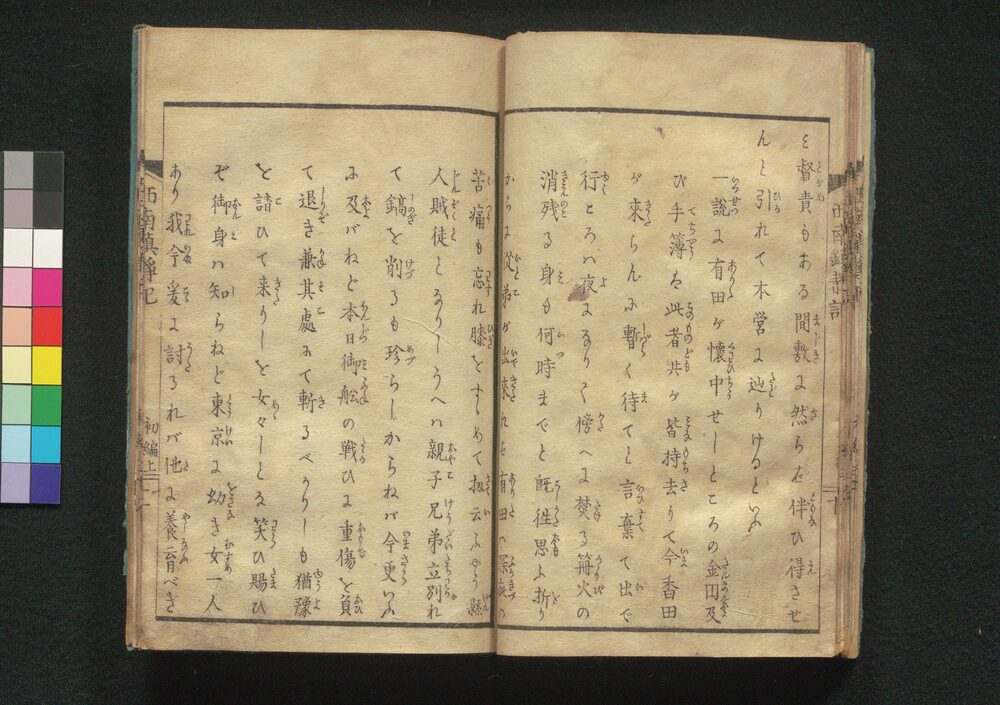 を督責もある間敷に然らを伴ひ得させ
んと引れて本営に辿りけるといふ
一説に有田が懐中せしところの金円及
び手簿を此者共が皆持去りて今香田
が来らんに暫く待てと言棄て出で
行ところハ夜になりて傍へに焚る篝火の
消残る身も何時までと既往思ふ折り
からに従弟が出来れば有田ハ深痍の
苦痛も忘れ膝をすゝめて扨云ふやう縣
人賊徒となりしうへハ親子兄弟立別れ
て鎬を削るも珍らしからねバ今更いふ
に及バねど本日御舩の戦ひに重傷を負
て退き兼其處にて斬るべかりしも猶豫
を請ひて来りしを女々しとな笑ひ賜ひ
ぞ御身ハ知らねど東京に幼き女一人
あり我今爰に討るれバ他に養育べき
西南鎮静記
初編上